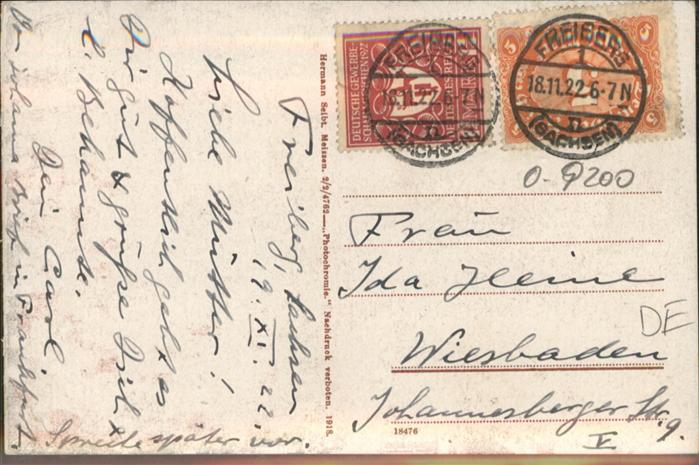 Freiberg, Sachsen
19. XI. 22.
Liebe Mutter!
Hoffentlich geht es
Dir gut & grüße Dich &
Dein Carl
in Frankfurt.
später vor.
Hermann Seibt, Meissen. 2/2/4762 — „Photochromie." Nachdruck verboten. 1918.
DEUTSCHE GEWERBE-
SCHAU MÜNCHEN 1922
FREIBERG
18.11.22 6-7 N
(SACHSEN)
FREIBERG
1
18.11.22 6-7 N
(SACHSEN)
5
5
0-9200
Frau
Ida Heine
DE
Wiesbaden
Johannesberger Str. 9.
V
18476